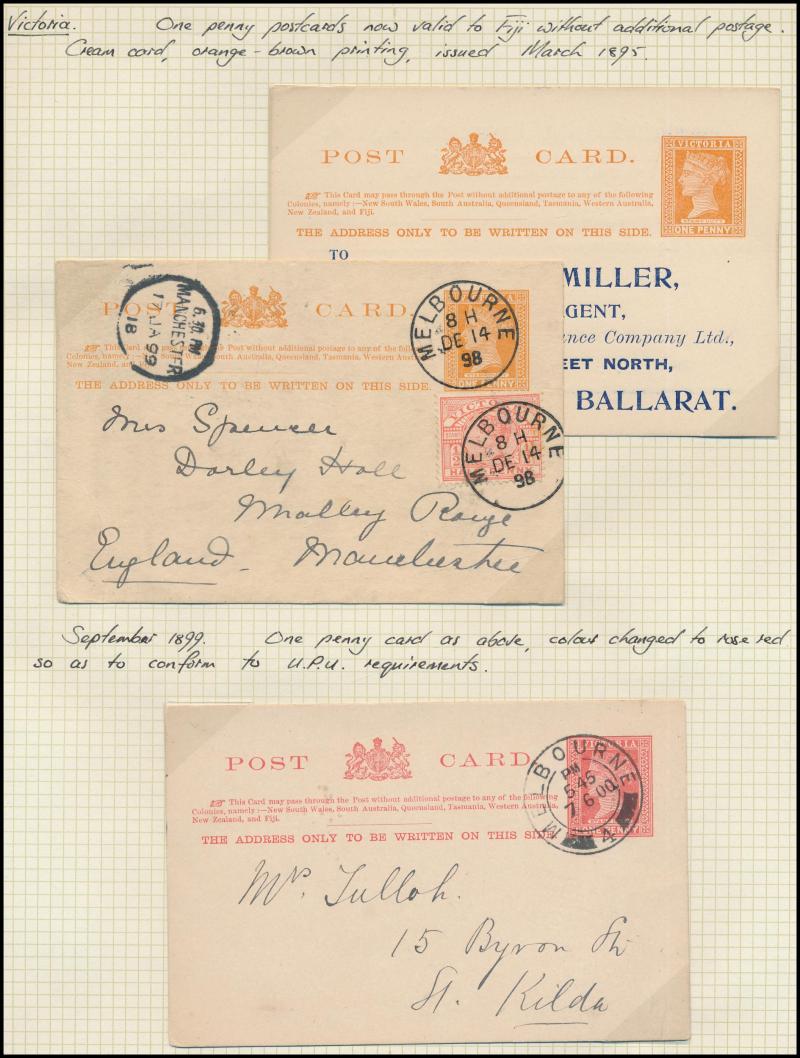 Victoria. One penny postcards now valid to Fiji without additional postage.
Cream card, orange-brown printing, issued March 1895.
POST CARD.
VICTORIA
STAMP DUTY
ONE PENNY
This Card may pass through the Post without additional postage to any of the following
Colonies, namely:—New South Wales, South Australia, Queensland, Tasmania, Western Australia,
New Zealand, and Fiji.
THE ADDRESS ONLY TO BE WRITTEN ON THIS SIDE.
TO
MILLER,
GENT,
ance Company Ltd.,
EET NORTH,
BALLARAT.
POST CARD
6.30 PM
MANCHESTER
17 JA 99
18
MELBOURNE
8 H
DE 14
98
This Card may pass through the Post without additional postage to any of the following
Colonies, namely:—New South Wales, South Australia, Queensland, Tasmania, Western Australia,
New Zealand, and Fiji.
ONE PENNY
THE ADDRESS ONLY TO BE WRITTEN ON THIS SIDE.
VICTO
MELBOURNE
8 H
DE 14
98
Mrs Spencer
Darley Hall
Whalley Range
England. Manchester
September 1899. One penny card as above, colour changed to rose red
so as to conform to U.P.U. requirements.
POST CARD
VICTORIA
ONE PENNY
MELBOURNE
PM
5 45
7 6 00
4
This Card may pass through the Post without additional postage to any of the following
Colonies, namely:—New South Wales, South Australia, Queensland, Tasmania, Western Australia,
New Zealand, and Fiji.
THE ADDRESS ONLY TO BE WRITTEN ON THIS SIDE
Mrs. Tulloh.
15 Byron St.
St. Kilda